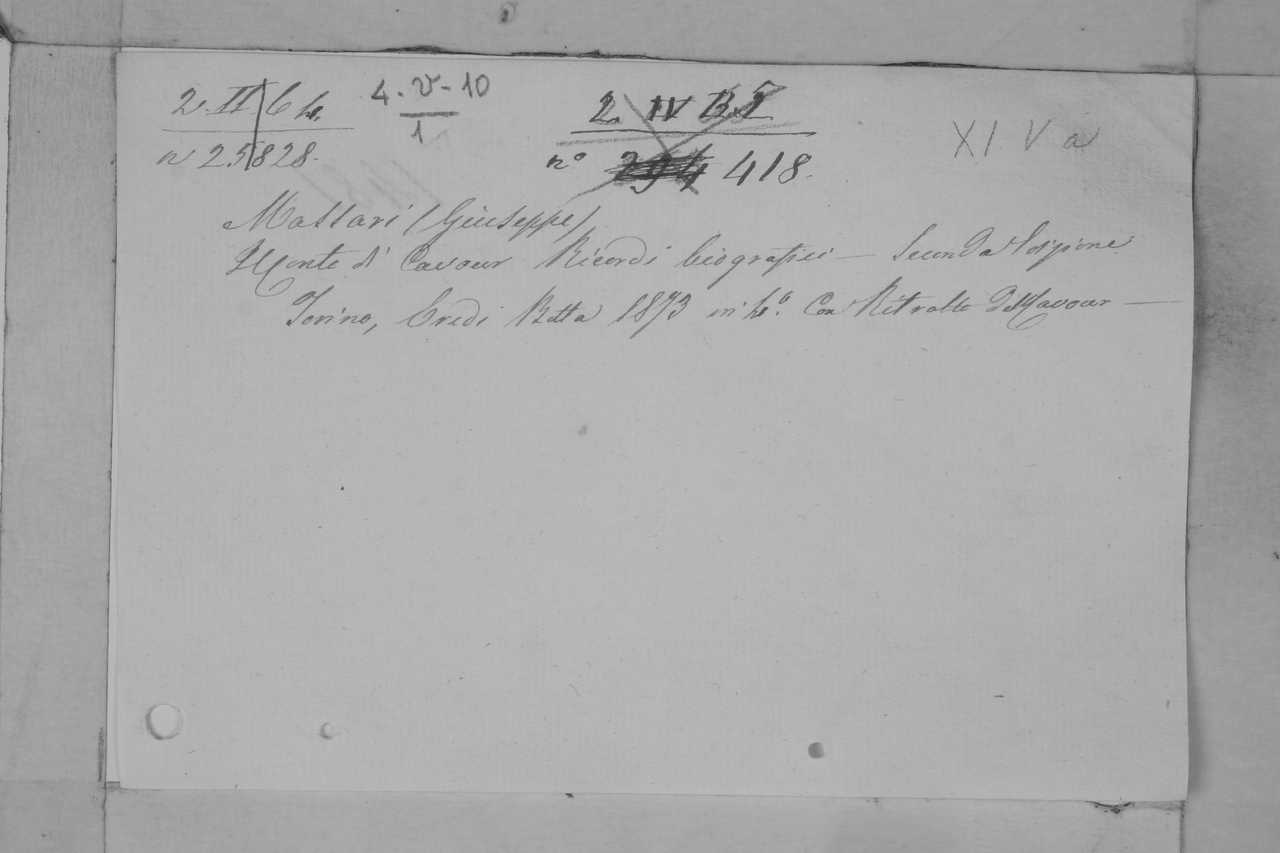 2. II 6 4. 4. V - 10 2. IV B I XI V a
n 25828. 1 n° 294 418.
Massari (Giuseppe)
Il Conte di Cavour Ricordi biografici — Seconda
Torino, Eredi Botta 1873 in 4.° Con Ritratto del Cavour —